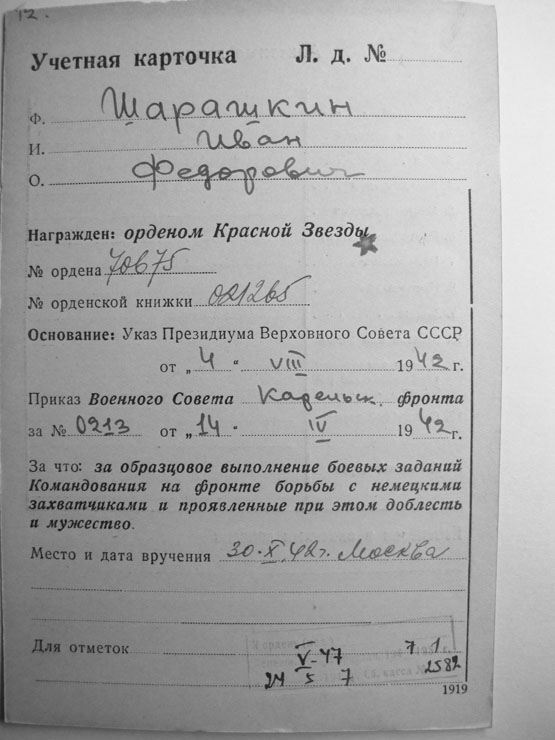 12.
Учетная карточка Л. д. №
Ф. Шарашкин
И. Иван
О. Федорович
Награжден: орденом Красной Звезды
№ ордена 70675
№ орденской книжки 021265
Основание: Указ Президиума Верховного Совета СССР
от „ 4 “ VIII 1942 г.
Приказ Военного Совета Карельск. фронта
за № 0213 от „ 14 “ IV 1942 г.
За что: за образцовое выполнение боевых заданий
Командования на фронте борьбы с немецкими
захватчиками и проявленные при этом доблесть
и мужество.
Место и дата вручения 30.X.42г. Москва
Для отметок V-47 7 1
24 5 7 2582
1919